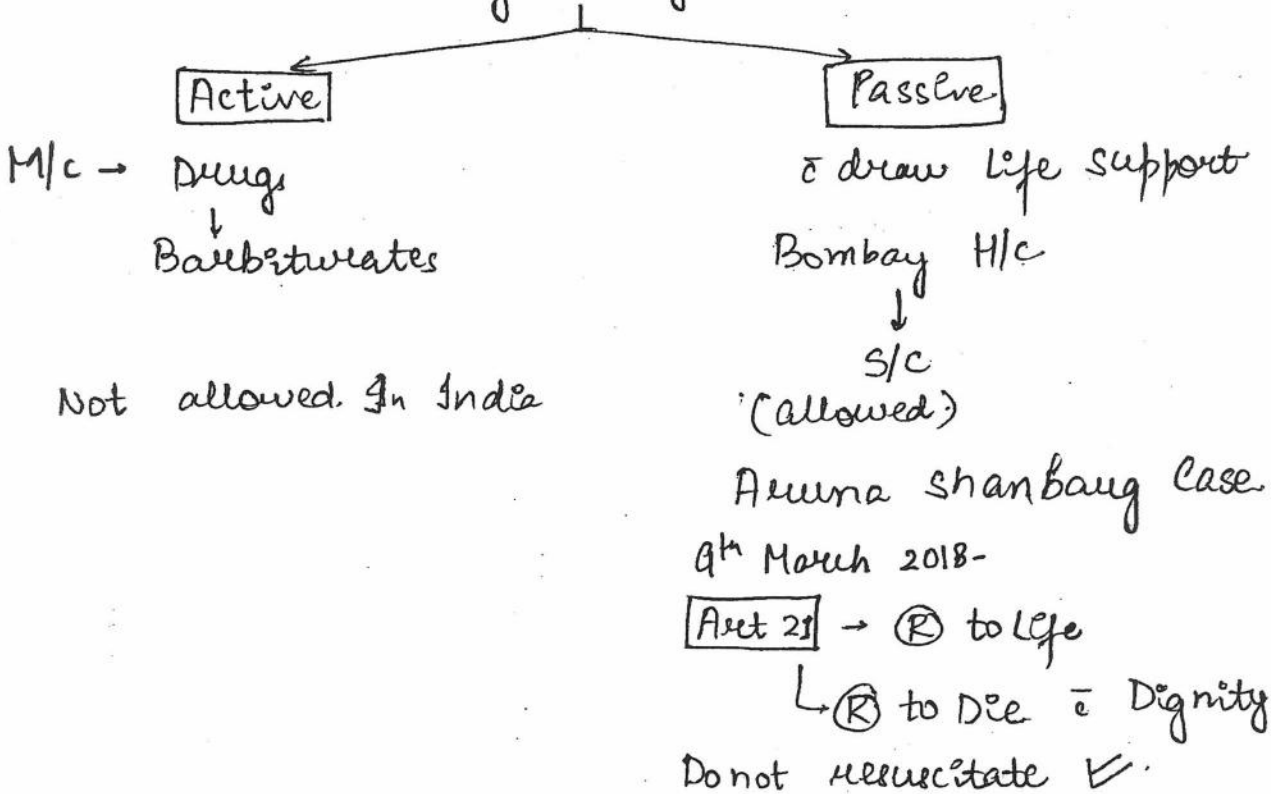 Active
Passive
M/c → Drugs
↓
Barbiturates
Not allowed. In India
c̄ draw Life support
Bombay H/c
↓
S/c
(allowed)
Aruna Shanbaug Case
9th March 2018-
Art 21 → Ⓡ to Life
↳ Ⓡ to Die c̄ Dignity
Do not resuscitate ✓.